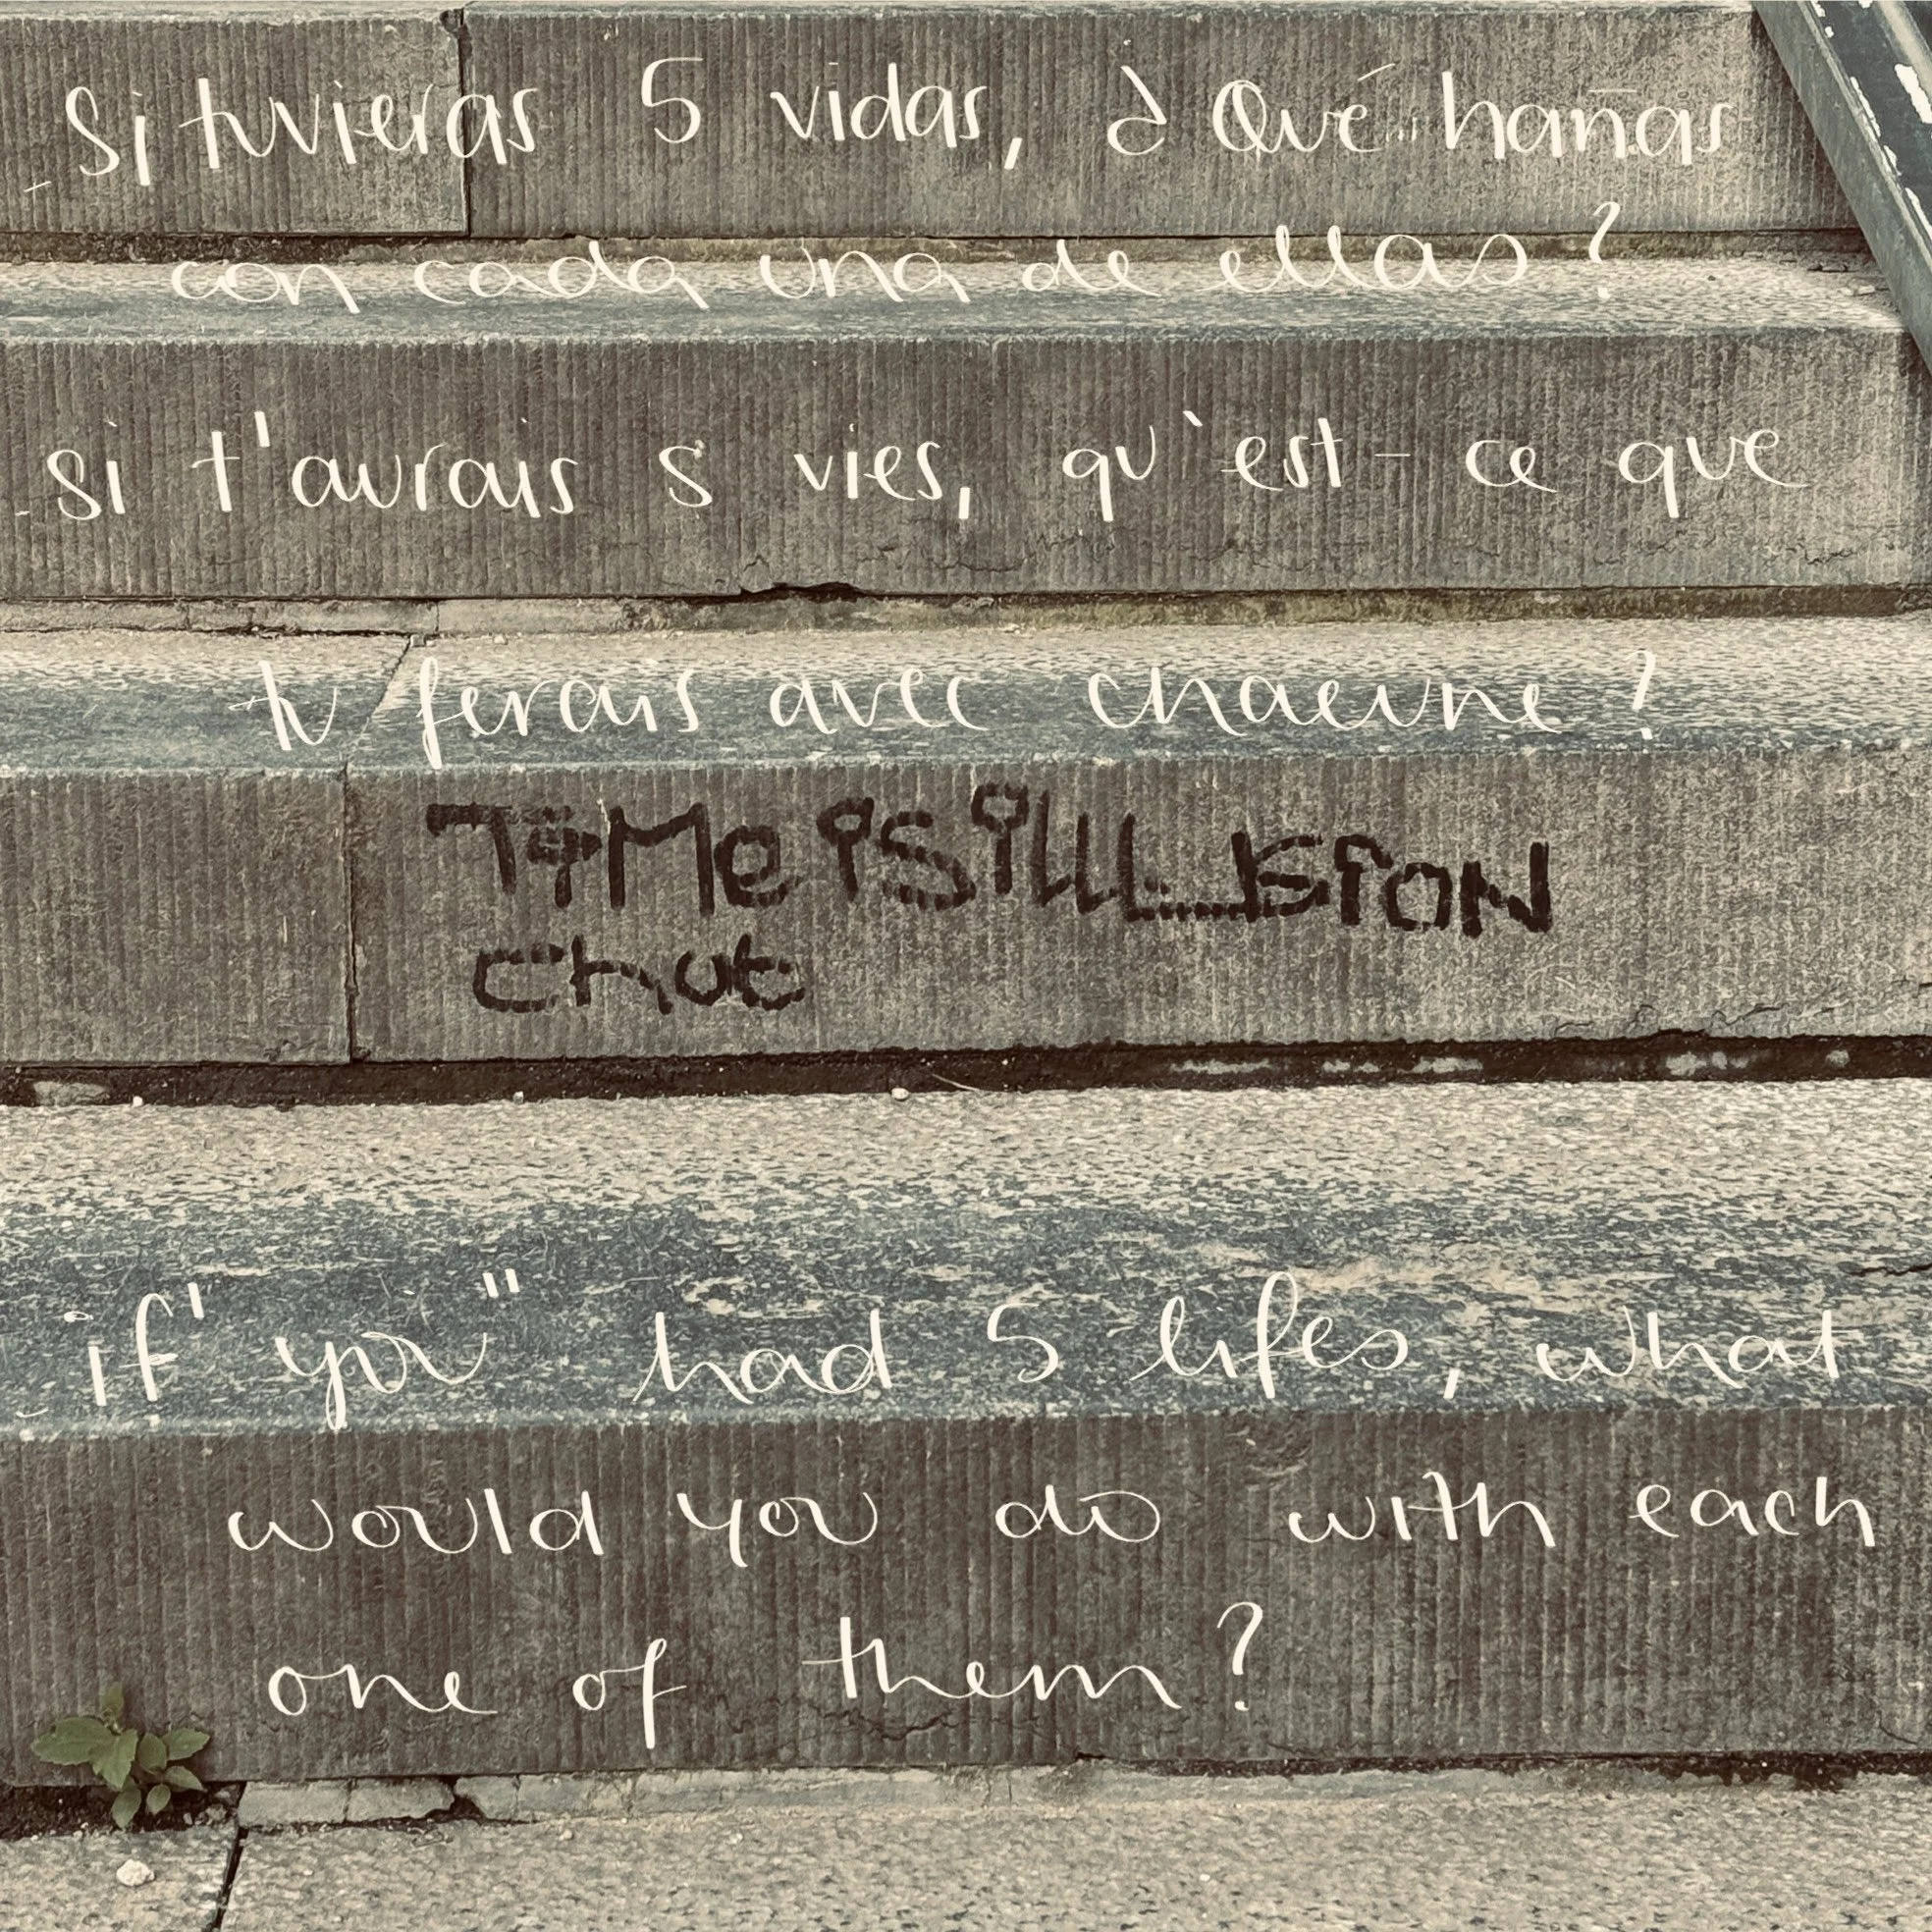 - Si tuvieras 5 vidas, ¿Qué harías
con cada una de ellas?
- si t'aurais 5 vies, qu'est-ce que
tu ferais avec chacune?
TiMe iS iLLUSioN
chut
- if "you" had 5 lifes, what
would you do with each
one of them?